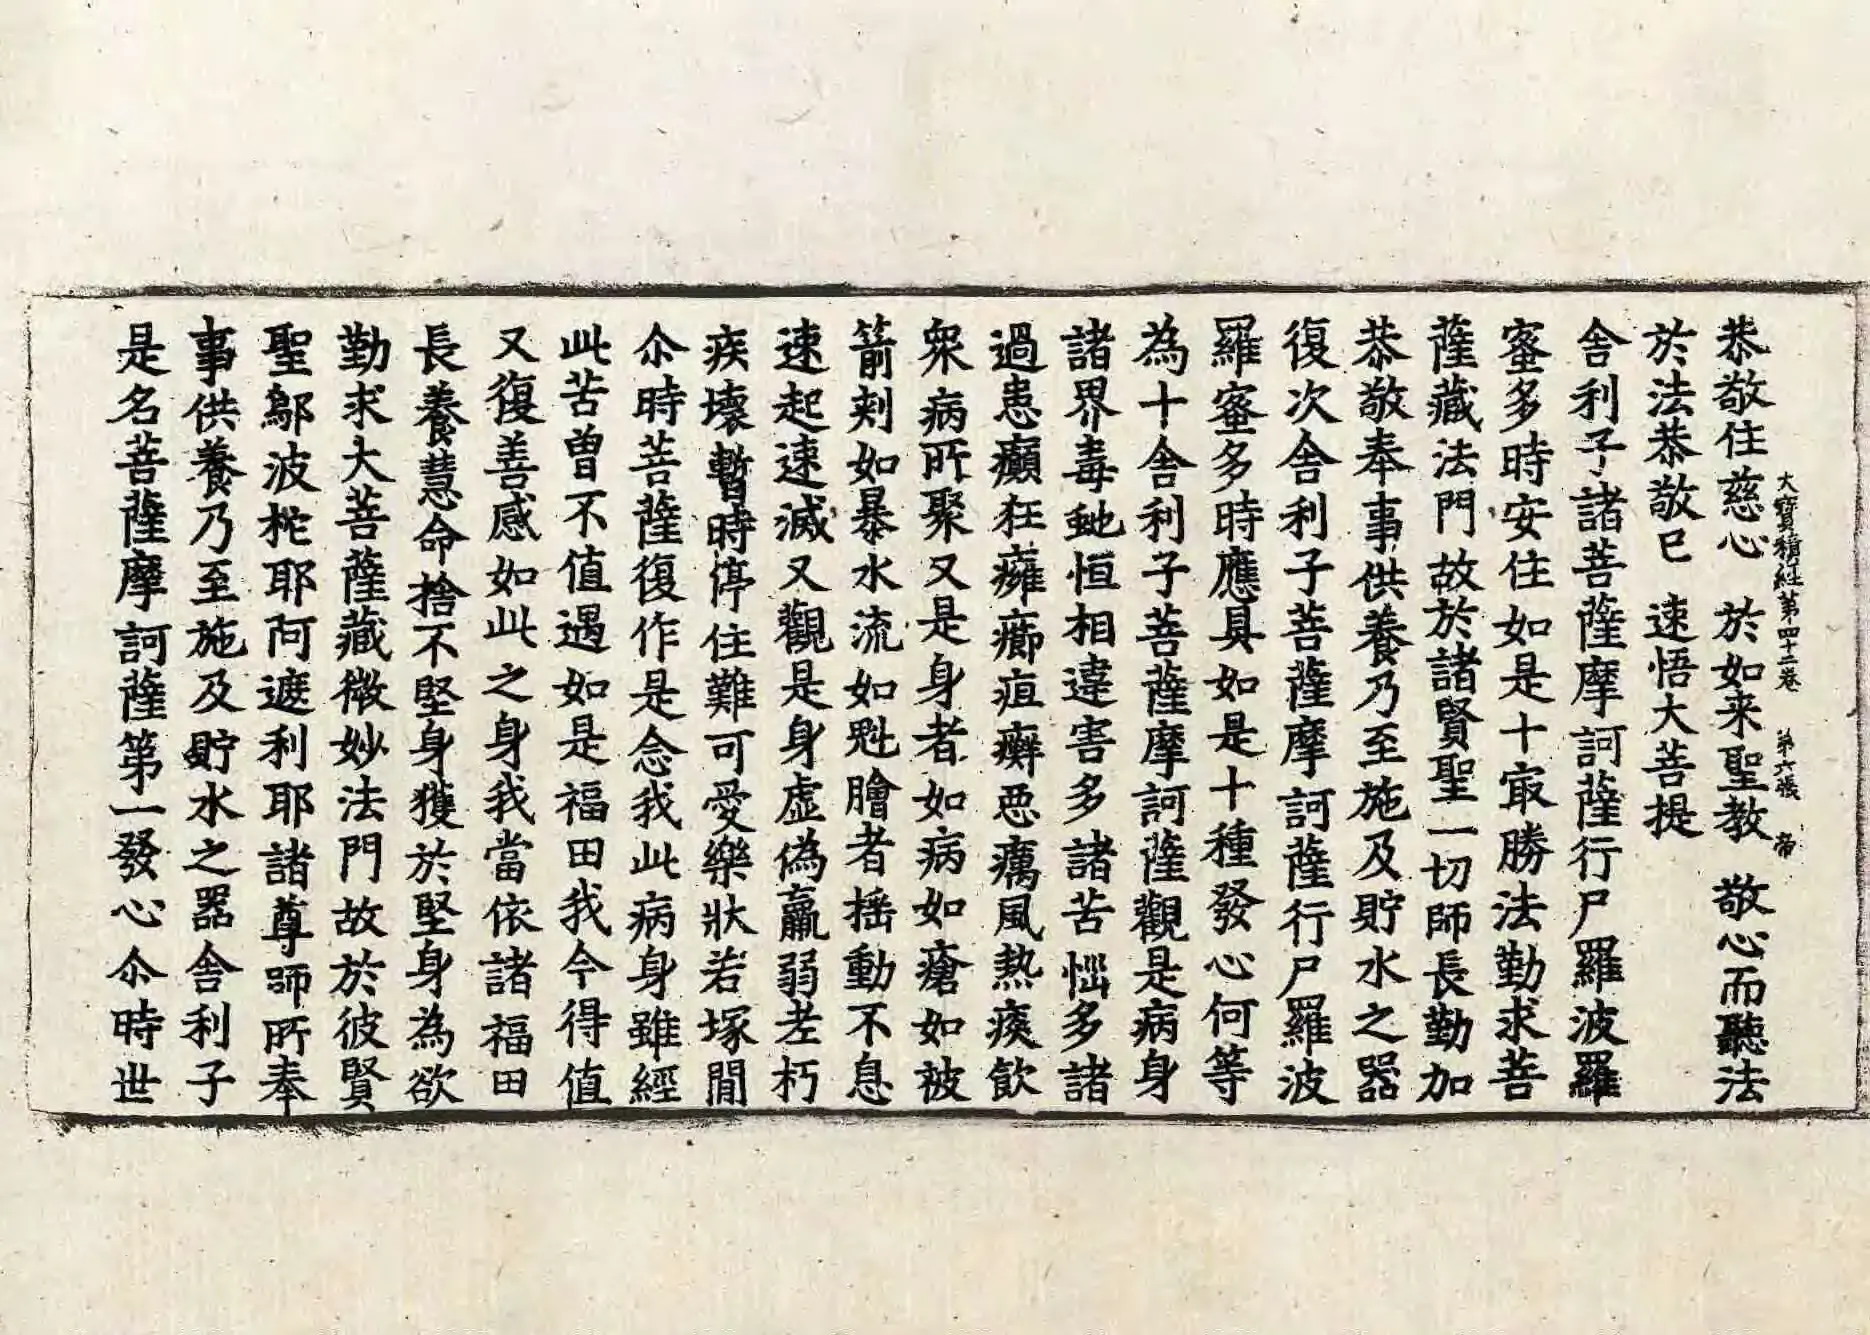 大寶積經第四十二卷　第六張　帝
恭敬住慈心　於如来聖教　敬心而聽法
於法恭敬已　速悟大菩提
舍利子諸菩薩摩訶薩行尸羅波羅
蜜多時安住如是十㝡勝法勤求菩
薩藏法門故於諸賢聖一切師長勤加
恭敬奉事供養乃至施及貯水之器
復次舍利子菩薩摩訶薩行尸羅波
羅蜜多時應具如是十種發心何等
為十舍利子菩薩摩訶薩觀是病身
諸界毒虵恒相違害多諸苦惱多諸
過患癲狂癰癤疽癬惡癘風熱痰飲
衆病所聚又是身者如病如瘡如被
箭剌如暴水流如魁膾者揺動不息
速起速滅又觀是身虛偽羸弱老朽
疾壞暫時停住難可愛樂狀若塚間
尒時菩薩復作是念我此病身雖經
此苦曾不值遇如是福田我今得值
又復善感如此之身我當依諸福田
長養慧命捨不堅身獲於堅身為欲
勤求大菩薩藏微妙法門故於彼賢
聖鄔波柁耶阿遮利耶諸尊師所奉
事供養乃至施及貯水之器舍利子
是名菩薩摩訶薩第一發心尒時世